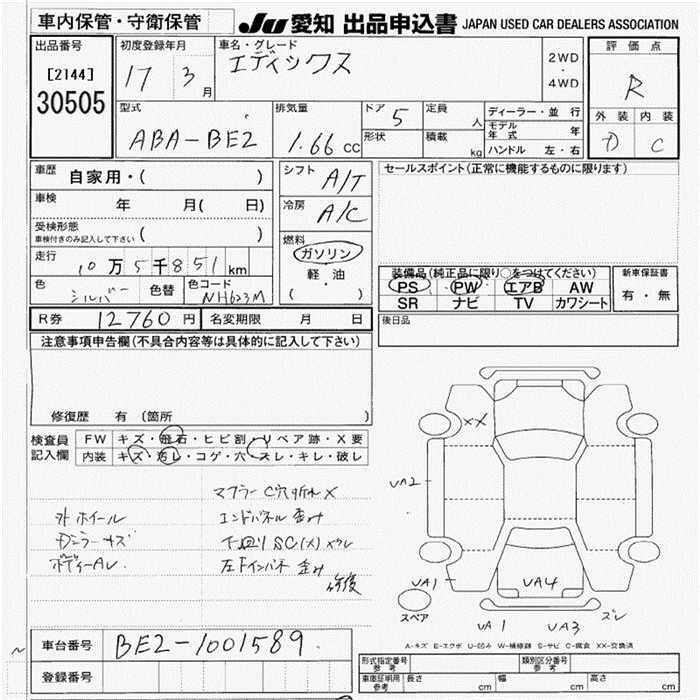 車内保管・守衛保管
JU 愛知 出品申込書 JAPAN USED CAR DEALERS ASSOCIATION
出品番号
[2144]
30505
初度登録年月
17 3 月
車名・グレード
エディックス
2WD
・
4WD
評価点
R
外装 内装
D C
型式
ABA-BE2
排気量
1.66 cc
ドア 5
形状
定員 人
積載 kg
ディーラー・並 行
モデル年式 年
ハンドル 左・右
車歴 自家用・( )
車検 年 月( 日)
受検形態
車検付きのみ記入して下さい ( )
走行 10 万 5 千 851 km
色 シルバー 色替 色コード NH623M
シフト A/T
冷房 A/C
燃料
ガソリン
軽・油
( )
セールスポイント(正常に機能するものに限ります)
装備品(純正品に限り○をつけてください)
PS PW エアB AW
SR ナビ TV カワシート
新車保証書
有・無
R券 12760 円 名変期限 月 日
後日品
注意事項申告欄(不具合内容等は具体的に記入して下さい)
修復歴 有(箇所 )
検査員
記入欄
FW キズ・飛石・ヒビ割・リペア跡・X要
内装 キズ・汚レ・コゲ・穴・スレ・キレ・破レ
マフラーC穴折れX
外ホイール エンドパネル歪み
Dミラーキズ 下回りSC(X)メクレ
ボディーAレ 左Fインパネ 歪み
修復
XX
UA2
UA1
UA4
スペア
UA1 UA3 ズレ
A-キズ E-エクボ U-凹み W-補修跡 S-サビ C-腐食 XX-交換済
車台番号 BE2-1001589
登録番号
形式指定番号
参考
類別区分番号
参考
車庫証明用
参考
長さ cm 幅 cm 高さ cm